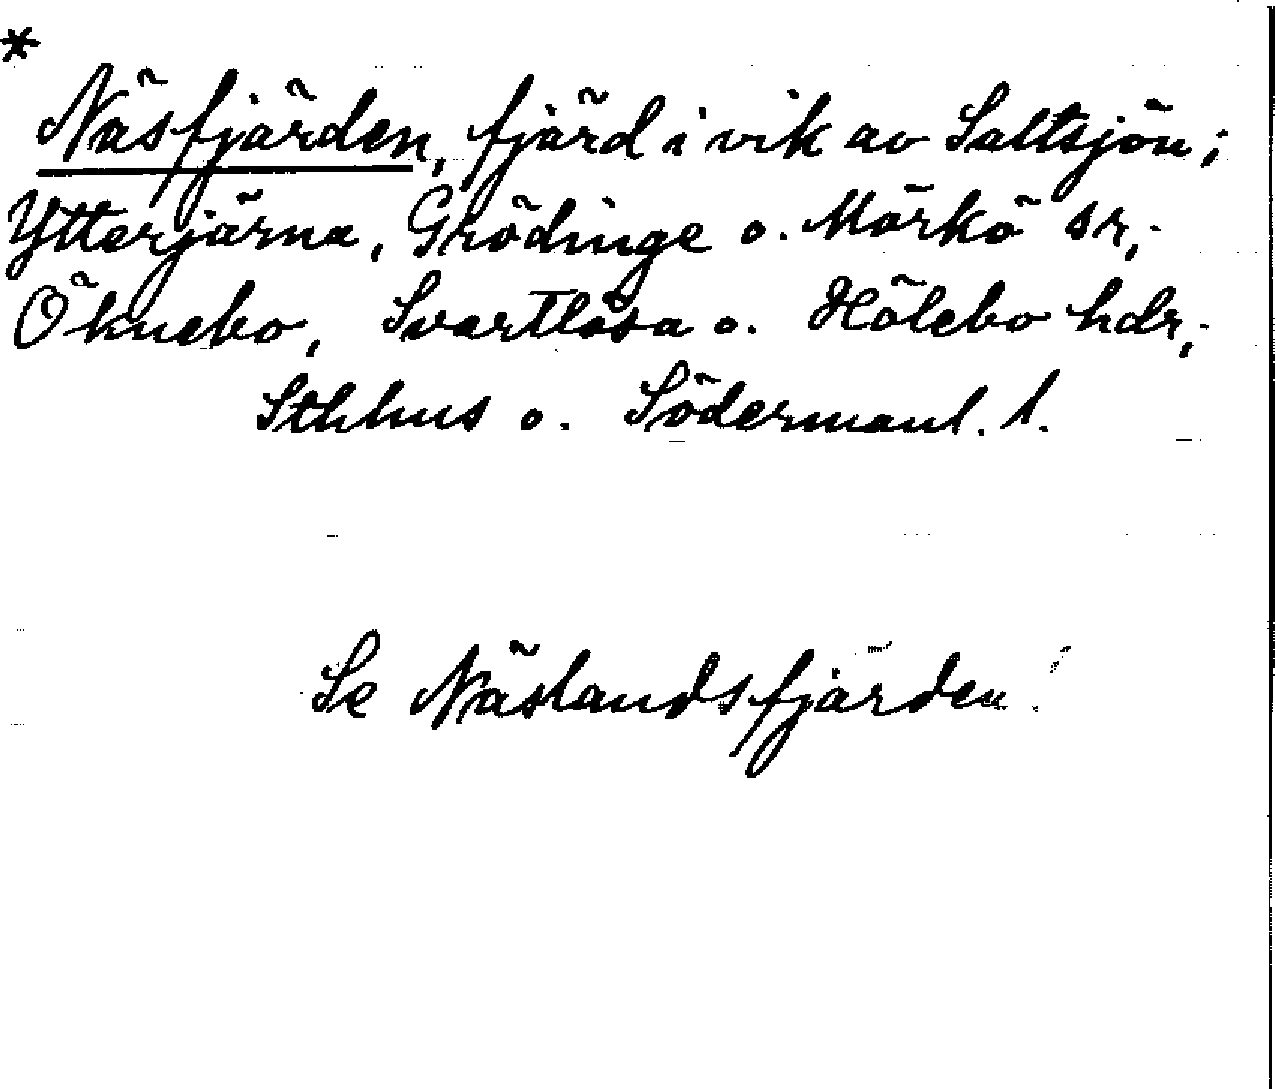 *
Näsfjärden, fjärd i vik av Saltsjön;
Ytterjärna, Grödinge o. Mörkö sr,
Öknebo, Svartlösa o. Hölebo hdr,
Sthlms o. Södermanl. l.
Se Näslandsfjärden!